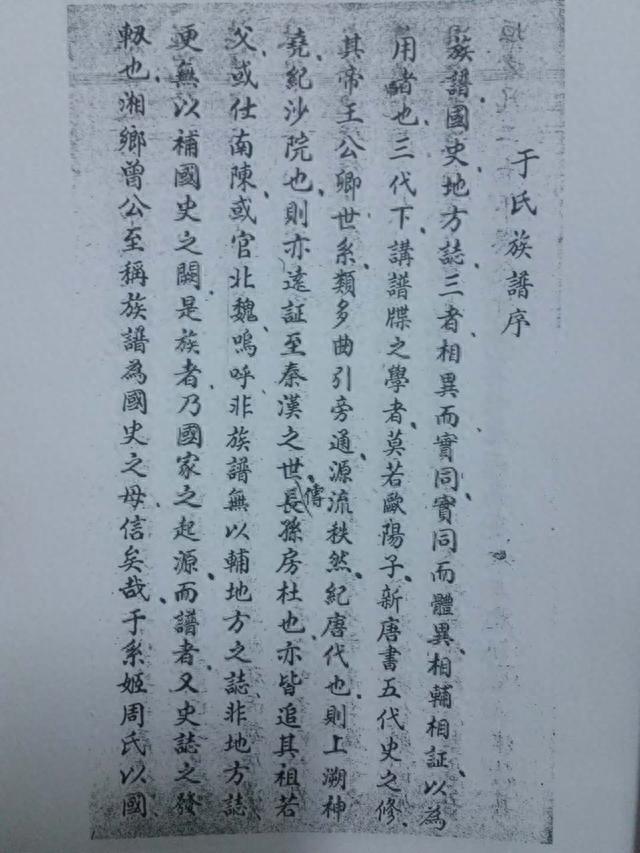 于氏族譜序
族譜、國史、地方誌、三者相異而實同、實同而體異、相輔相証、以為
用諸也、三代下、講譜牒之學者、莫若歐陽子、新唐書五代史之修、
其帝王公卿、世系類多曲引旁通、源流秩然、紀唐代也、則上溯神
堯、紀沙院也、則亦遠証至秦漢之世、傳長孫房杜也、亦皆追其祖若
父、或仕南陳、或官北魏、嗚呼、非族譜無以輔地方之誌、非地方誌、
更無以補國史之闕、是族者、乃國家之起源、而譜者、又史誌之發
軔也、湘鄉曾公至稱族譜為國史之母、信矣哉、于系姬周氏以國